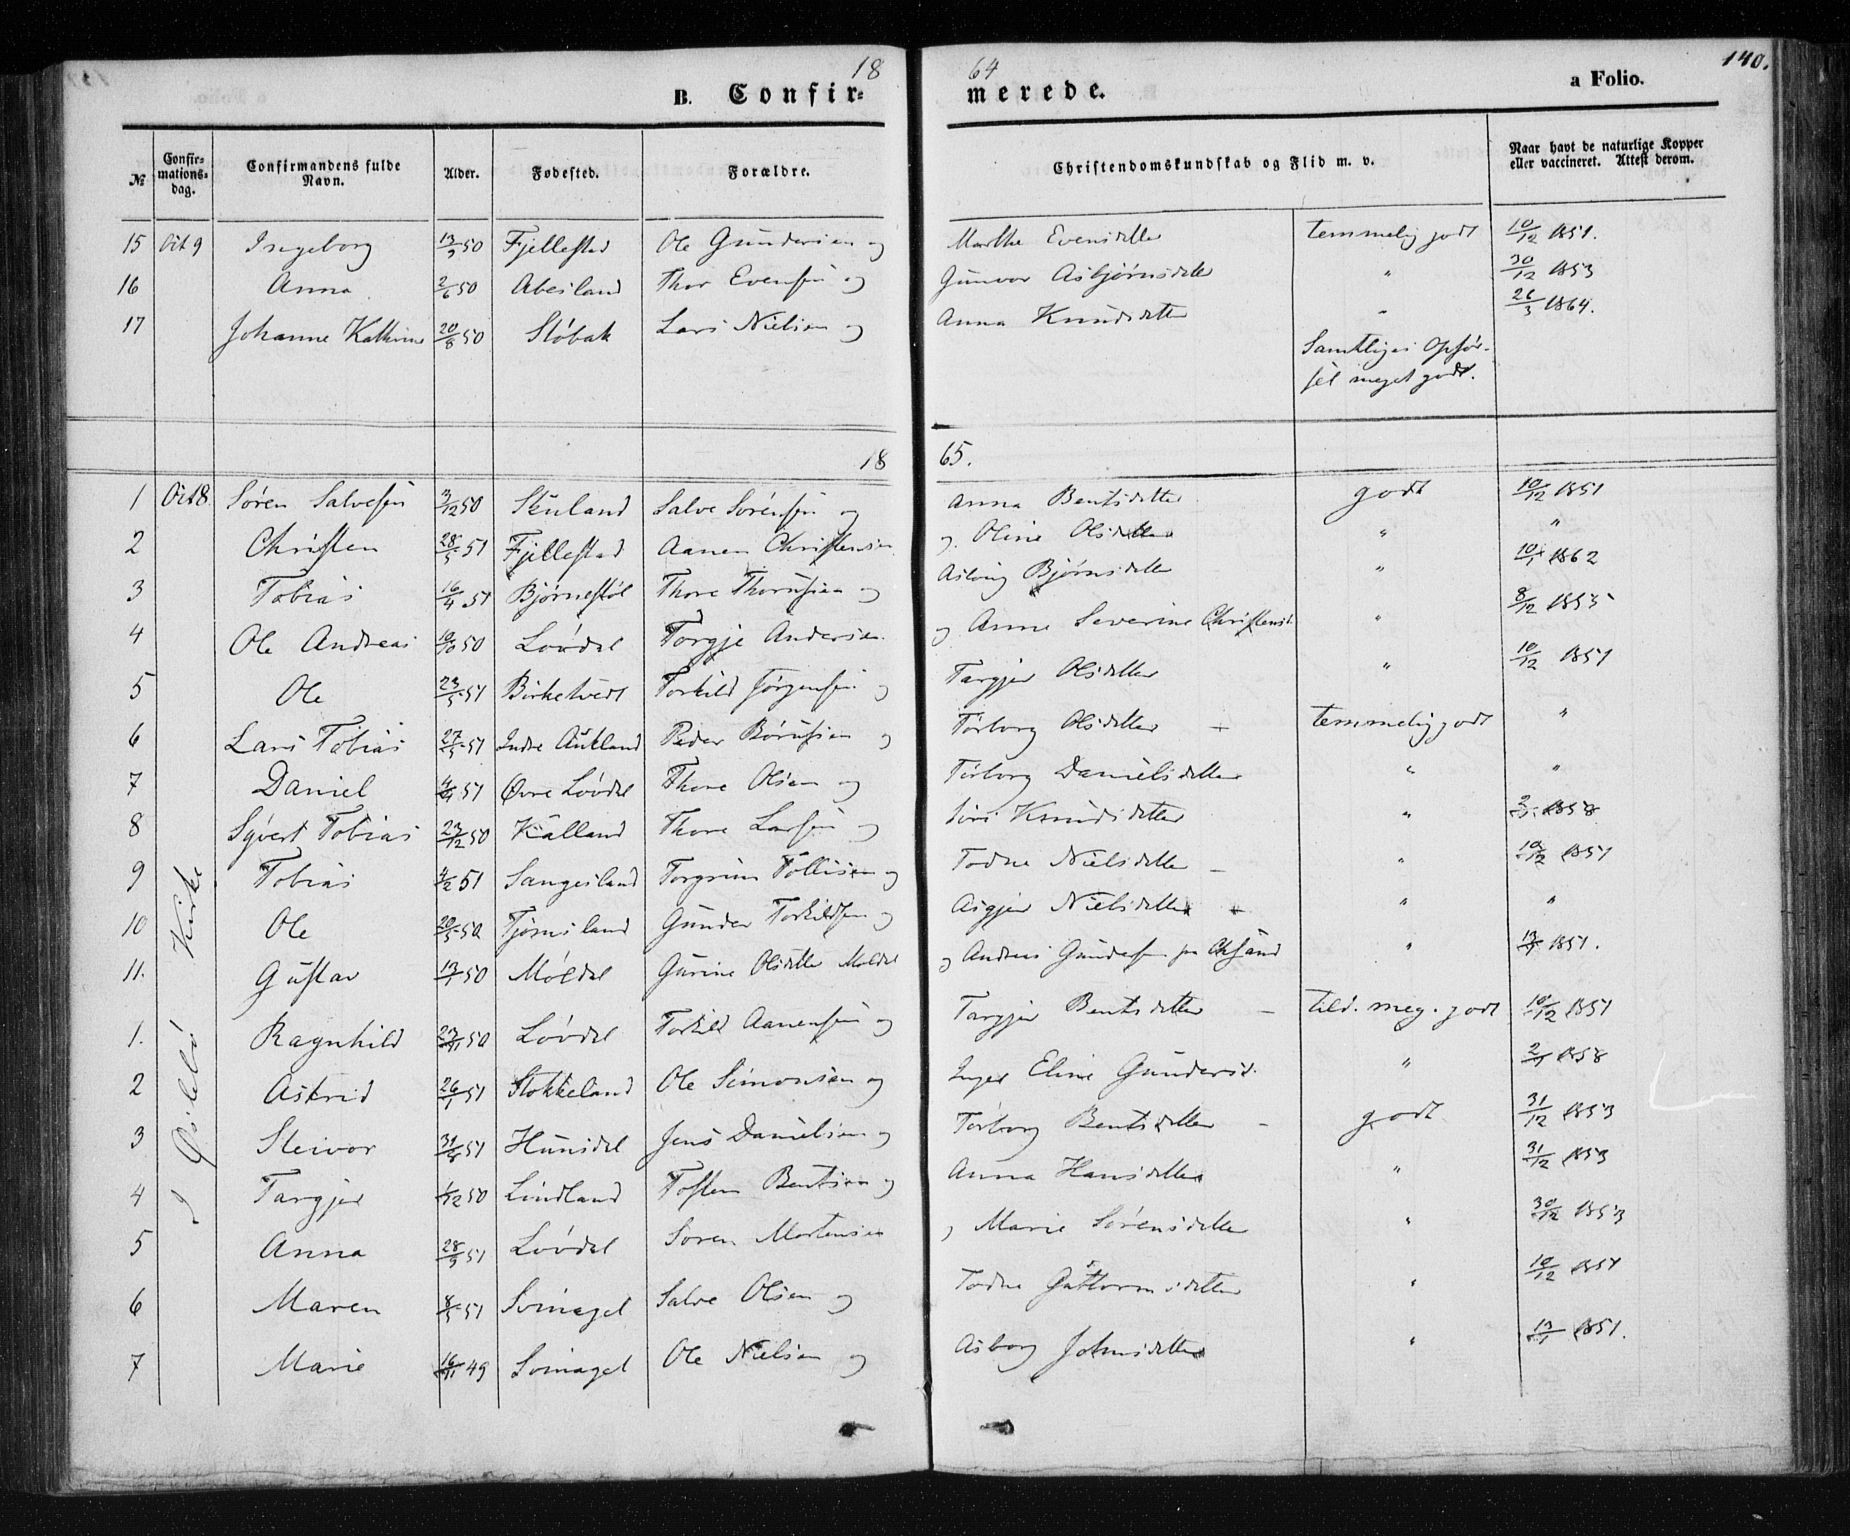 18 64 140.
B. Confir= merede. a Folio.
No Confir=mations=dag. Confirmandens fulde Navn. Alder. Fødested. Forældre. Christendomskundskab og Flid m. v. Naar havt de naturlige Kopper eller vaccineret. Attest derom.
15 Oct 9 Ingeborg 13/3 50 Fjellestad Ole Gundersen og Marthe Evensdatter temmelig godt 10/12 1851.
16 Anna 2/6 50 Abesland Thor Evensen og Gunvor Asbjørnsdatter " 30/12 1853
17 Johanne Kathrine 20/8 50 Støbak Lars Nielsen og Anna Knudsdatter " 26/3 1864.
Samtliges Opfør-
sel meget godt.
18 65.
1 Oct 8 Søren Salvesen 3/12 50 Skuland Salve Sørensen og Anna Bentsdatter godt 10/12 1851
2 Christen 28/3 51 Fjellestad Aanen Christensen og Oline Olsdatter " "
3 Tobias 16/4 51 Bjørnestøl Thore Thorusen og Aslaug Bjørnsdatter " 10/1 1862
4 Ole Andreas 10/10 50 Løvdal Torgje Andersen og Anne Severine Christensd. " 8/12 1855
5 Ole 23/5 51 Birketvedt Torkild Jørgensen og Targjer Olsdatter " 10/12 1851
6 Lars Tobias 27/5 51 Indre Aukland Peder Børusen og Torborg Olsdatter temmelig godt "
7 Daniel 51 Øvre Løvdal Thore Olsen og Torborg Danielsdatter " "
8 Syvert Tobias 23/12 50 Kålland Thore Larsen og Siri Knudsdatter " 1858
9 Tobias 4/2 51 Sangesland Torgrim Tollisen og Todne Nielsdatter " 10/12 1851
10 Ole 20/5 50 Tjømsland Gunder Torkildsen og Asgjer Nielsdatter " "
11. Gustav 50 Møldal Gurine Olsdatter Moldal og Andreas Gundersen " 1851.
1. Ragnhild 23/11 50 Løvdal Torkild Aanensen og Targjer Bentsdatter tild. meg. godt 10/12 1851
2 Astrid 26/1 51 Stokkeland Ole Simonsen og Inger Eline Gundersd. " 1858
3 Steivor 31/8 51 Hunsdal Jens Danielsen og Torborg Bentsdatter godt 31/12 1853
4 Targjer 1/12 50 Lindland Tosten Bentsen og Anna Hansdatter " 31/12 1853
5 Anna 28/3 51 Løvdal Soren Mortensen og Marie Sørensdatter " 30/12 1853
6 Maren 8/5 51 Svinagel Salve Olsen og Todne Guttormsdatter " 10/12 1851
7 Marie 16/11 49 Svinagel Ole Nielsen og Asborg Johnsdatter " 1851.
I Øslebø Kirke